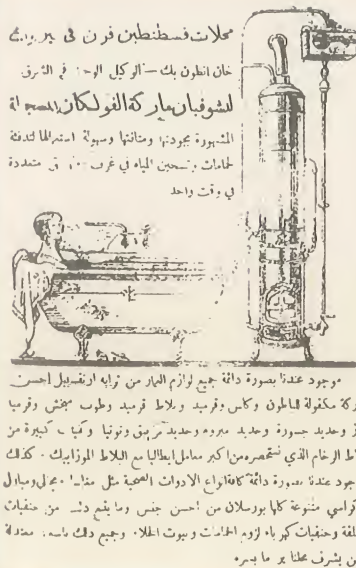 محلات قسطنطين قرن في بيروت
خان انطون بك — الوكيل الوحيد في الشرق
للشوفبان ماركة الفولكان المسجلة
المشهورة بجودتها ومتانتها وسهولة استعمالها لتدفئة
الحمامات وتسخين المياه في غرف متعددة
في وقت واحد
موجود عندنا بصورة دائمة جميع لوازم العمار من ترابة احسن
ماركة مكفولة للباطون وكلس وقرميد وبلاط قرميد وطوب وقرميد
وحديد جسورة وحديد مبروم وحديد وتوتيا وكميات كبيرة من
بلاط الرخام الذي نستحضره من اكبر معامل ايطاليا مع البلاط الموزاييك . كذلك
موجود عندنا بصورة دائمة كافة انواع الادوات الصحية مثل مغاسل ومباول
وكراسي متنوعة كلها بورسلان من احسن جنس وما يقع من حنفيات
مختلفة وحنفيات كهرباء لزوم الحمامات وبيوت الخلاء وجميع ذلك معتدلة
من يشرف محلنا ير ما يسره